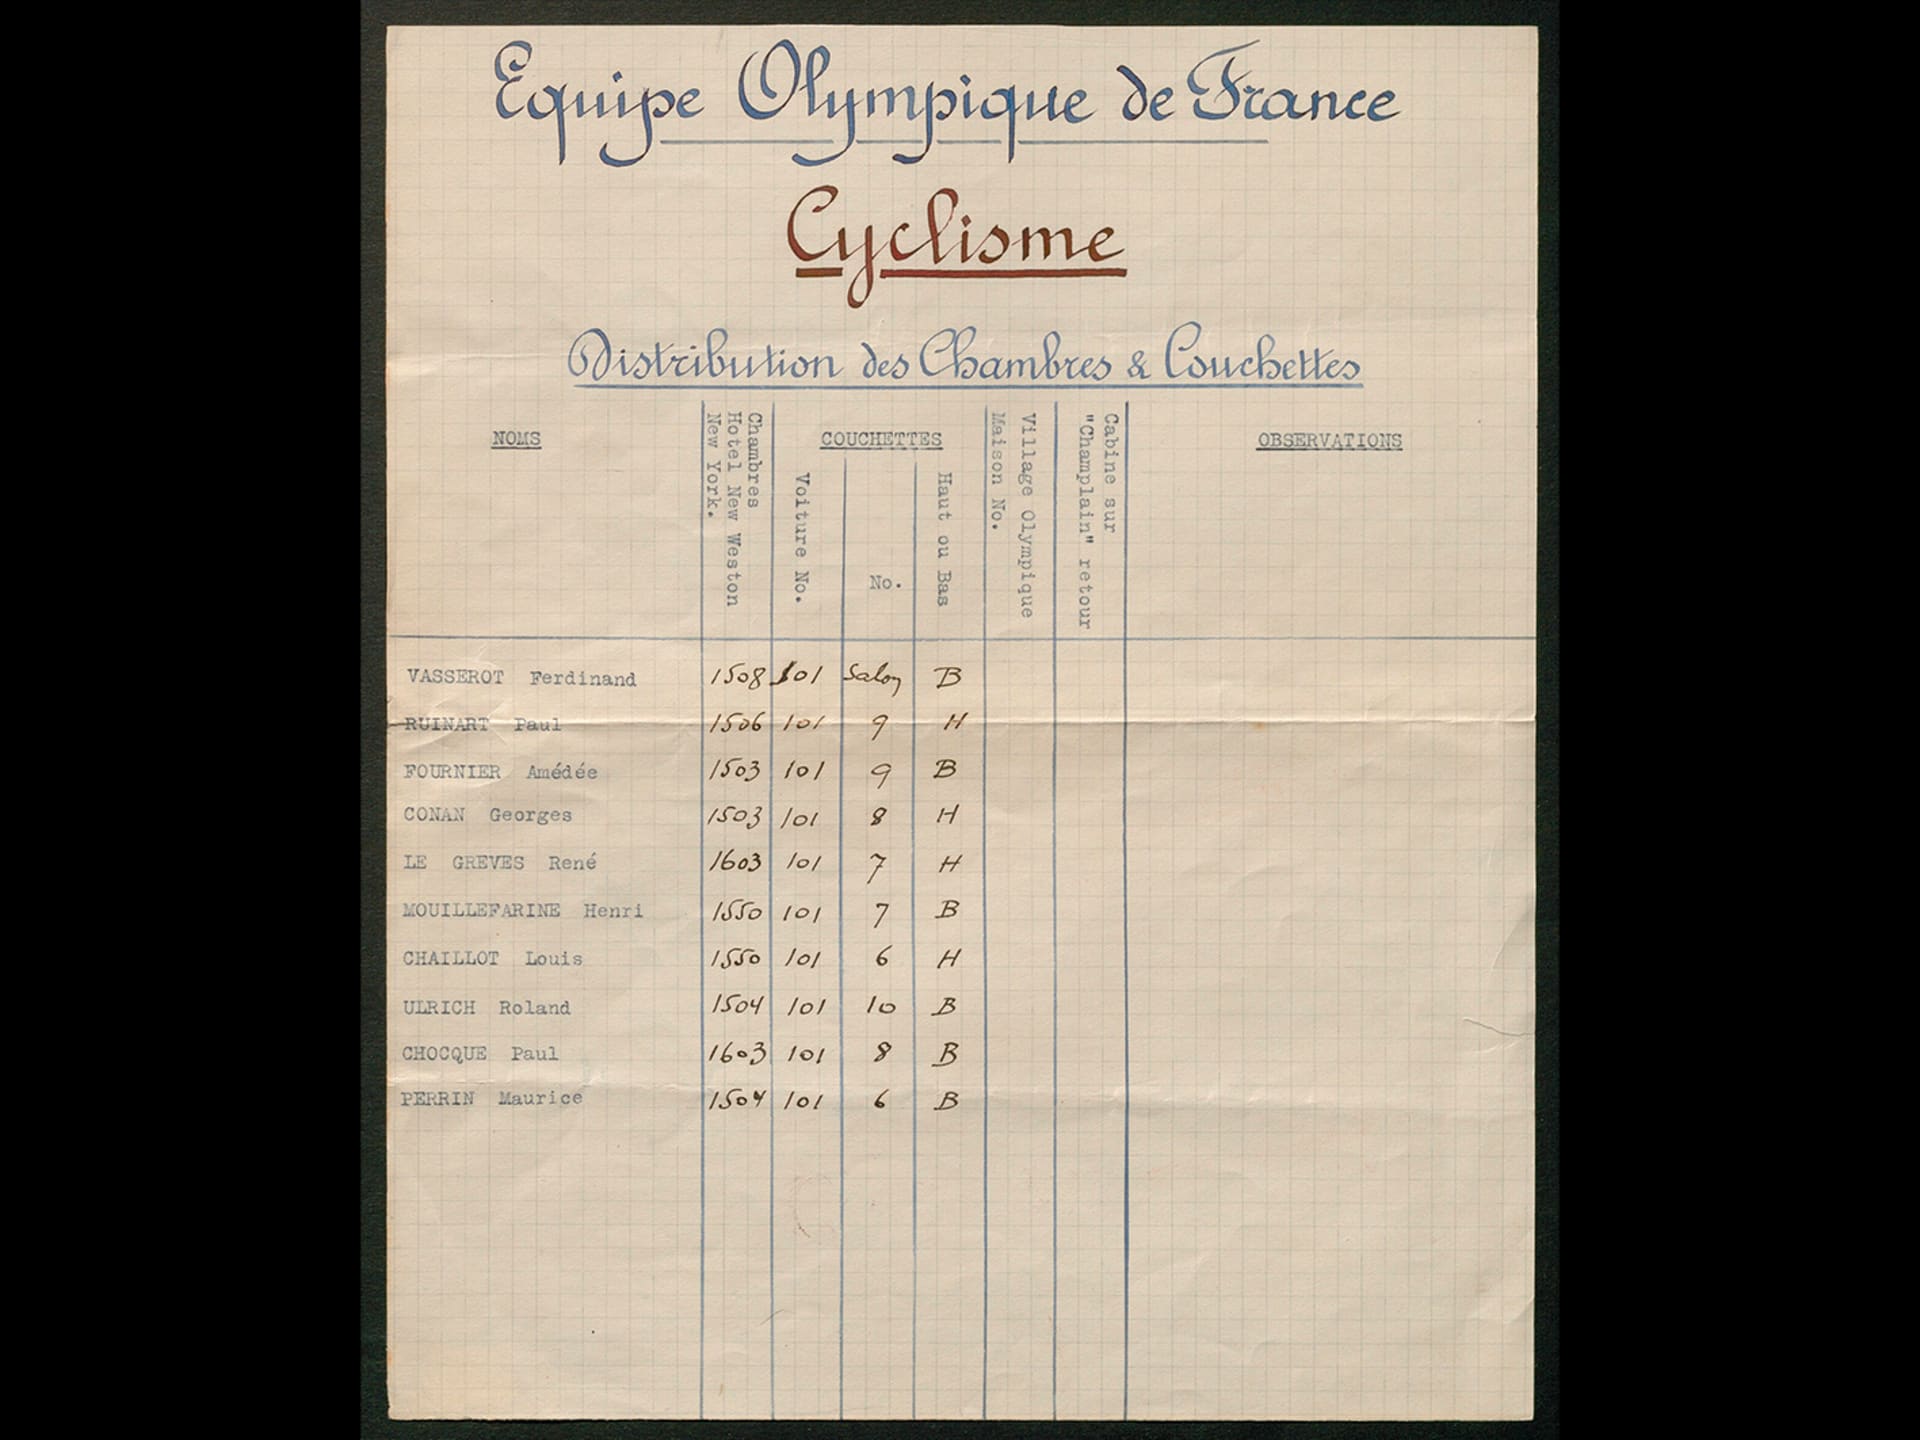 Equipe Olympique de France
Cyclisme
Distribution des Chambres & Couchettes
NOMS
Chambres
Hotel New Weston
New York.
COUCHETTES
Voiture No.
No.
Haut ou Bas
Village Olympique
Maison No.
Cabine sur
"Champlain" retour
OBSERVATIONS
VASSEROT Ferdinand 1508 101 Salon B
RUINART Paul 1506 101 9 H
FOURNIER Amédée 1503 101 9 B
CONAN Georges 1503 101 8 H
LE GREVES René 1603 101 7 H
MOUILLEFARINE Henri 1550 101 7 B
CHAILLOT Louis 1550 101 6 H
ULRICH Roland 1504 101 10 B
CHOCQUE Paul 1603 101 8 B
PERRIN Maurice 1504 101 6 B